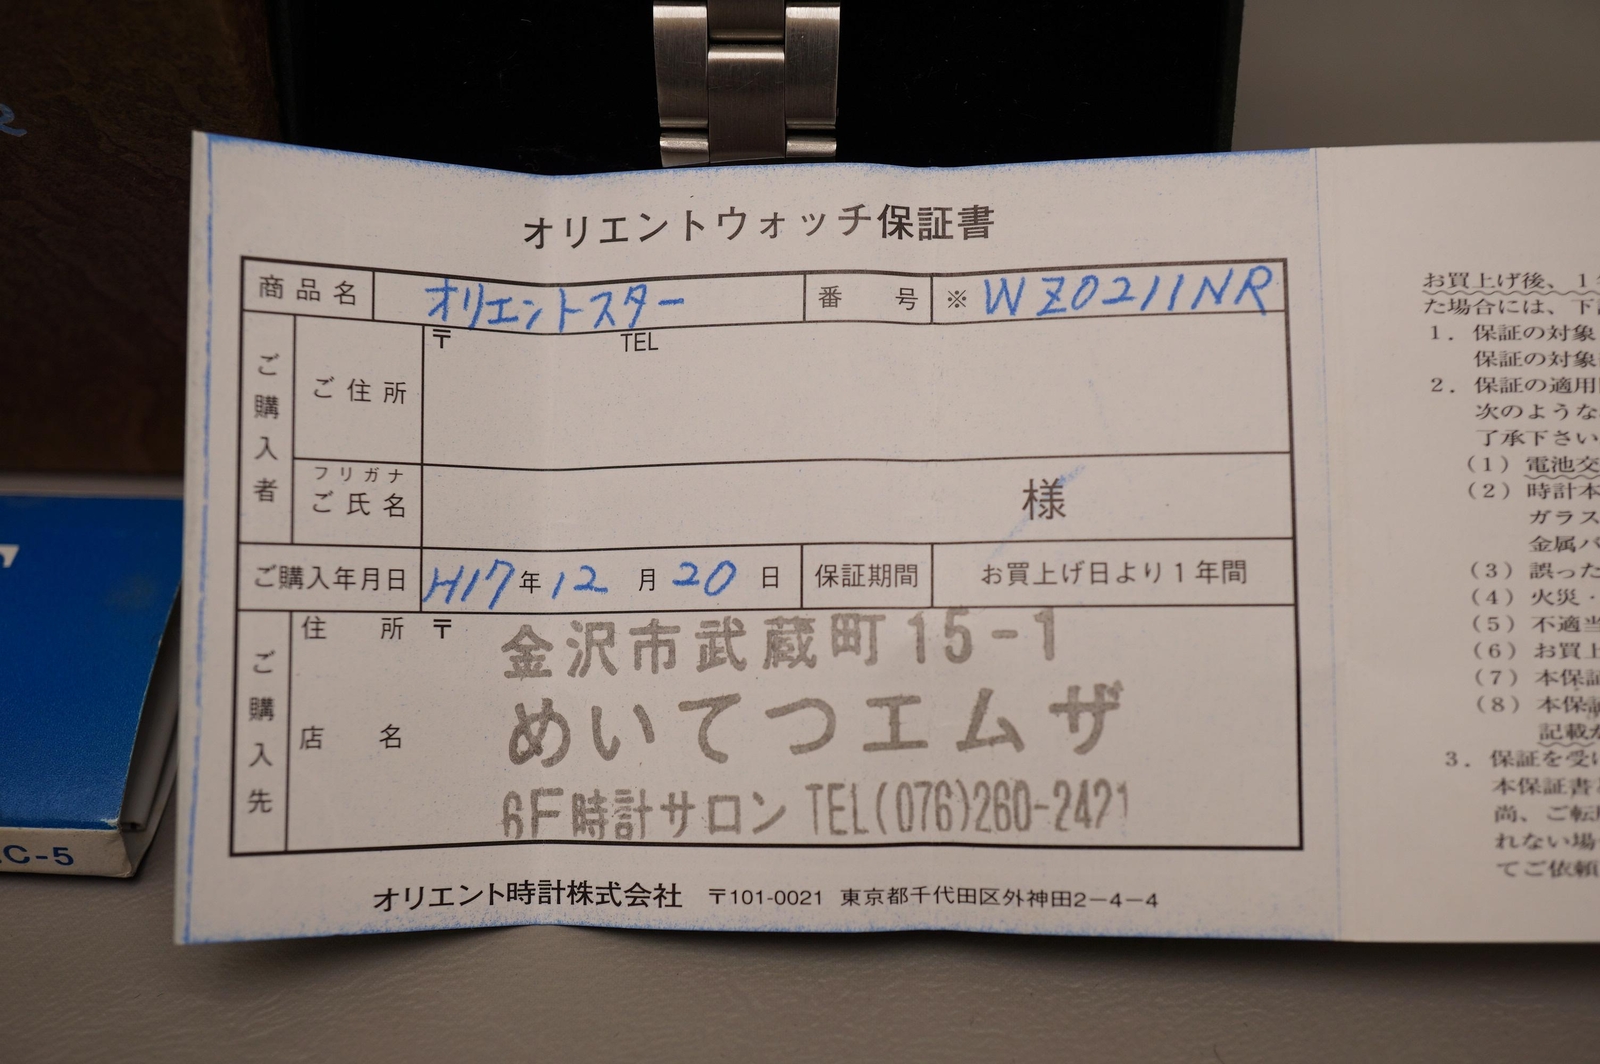 オリエントウォッチ保証書
商品名 オリエントスター 番号 ※ WZ0211NR
ご購入者
ご住所 〒 TEL
フリガナ
ご氏名 様
ご購入年月日 H17年12月20日 保証期間 お買上げ日より1年間
ご購入先
住所 〒 金沢市武蔵町15-1
店名 めいてつエムザ
6F時計サロン TEL(076)260-2421
オリエント時計株式会社 〒101-0021 東京都千代田区外神田2-4-4
お買上げ後、1
た場合には、下
1. 保証の対象
保証の対象
2. 保証の適用
次のような
了承下さい
(1) 電池交
(2) 時計本
ガラス
金属バ
(3) 誤った
(4) 火災・
(5) 不適当
(6) お買上
(7) 本保証
(8) 本保証
記載が
3. 保証を受け
本保証書
尚、ご転
れない場
てご依頼
C-5